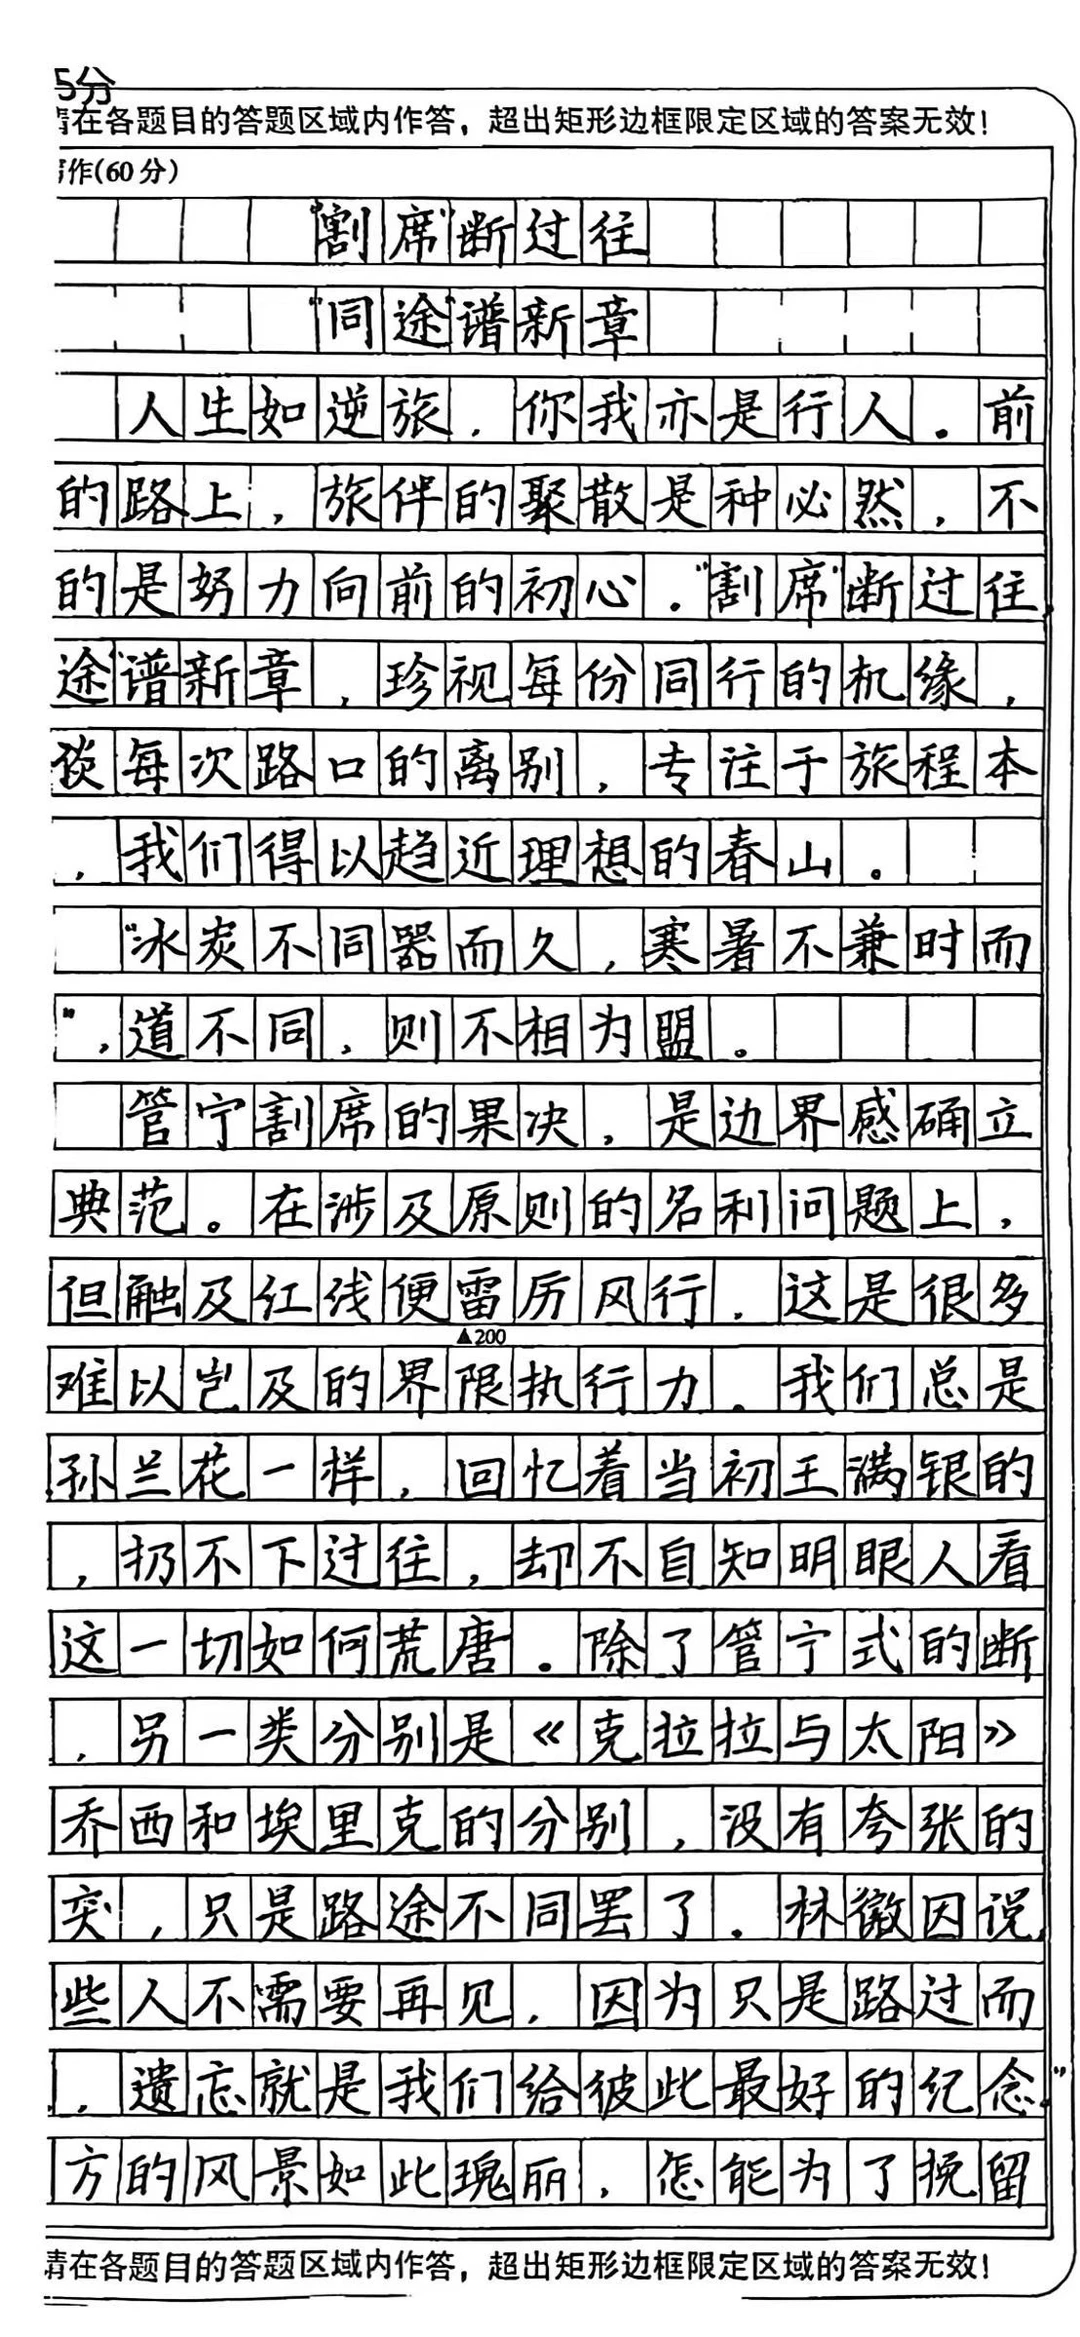 5分
请在各题目的答题区域内作答，超出矩形边框限定区域的答案无效！
写作(60分)
"割席"断过往
"同途"谱新章
人生如逆旅，你我亦是行人。前
的路上，旅伴的聚散是种必然，不
的是努力向前的初心。"割席"断过往，
途"谱新章，珍视每份同行的机缘，
淡每次路口的离别，专注于旅程本
，我们得以趋近理想的春山。
"冰炭不同器而久，寒暑不兼时而
"，道不同，则不相为盟。
管宁割席的果决，是边界感确立
典范。在涉及原则的名利问题上，
但触及红线便雷厉风行，这是很多
▲200
难以岂及的界限执行力。我们总是
孙兰花一样，回忆着当初王满银的
，扔不下过往，却不自知明眼人看
这一切如何荒唐。除了管宁式的断
，另一类分别是《克拉拉与太阳》
乔西和埃里克的分别，没有夸张的
突，只是路途不同罢了。林徽因说，
些人不需要再见，因为只是路过而
，遗忘就是我们给彼此最好的纪念。"
方的风景如此瑰丽，怎能为了挽留
请在各题目的答题区域内作答，超出矩形边框限定区域的答案无效！